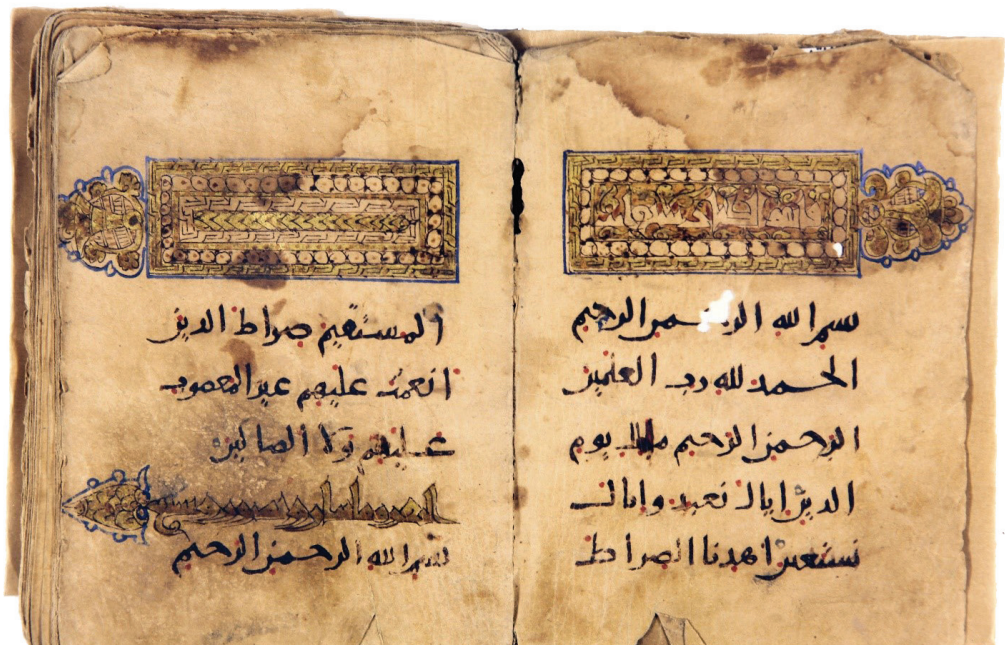 بسم الله الرحمن الرحيم
الحمد لله رب العلمين
الرحمن الرحيم ملك يوم
الدين اياك نعبد واياك
نستعين اهدنا الصراط
المستقيم صراط الذين
انعمت عليهم غير المغضوب
عليهم ولا الضالين
بسم الله الرحمن الرحيم